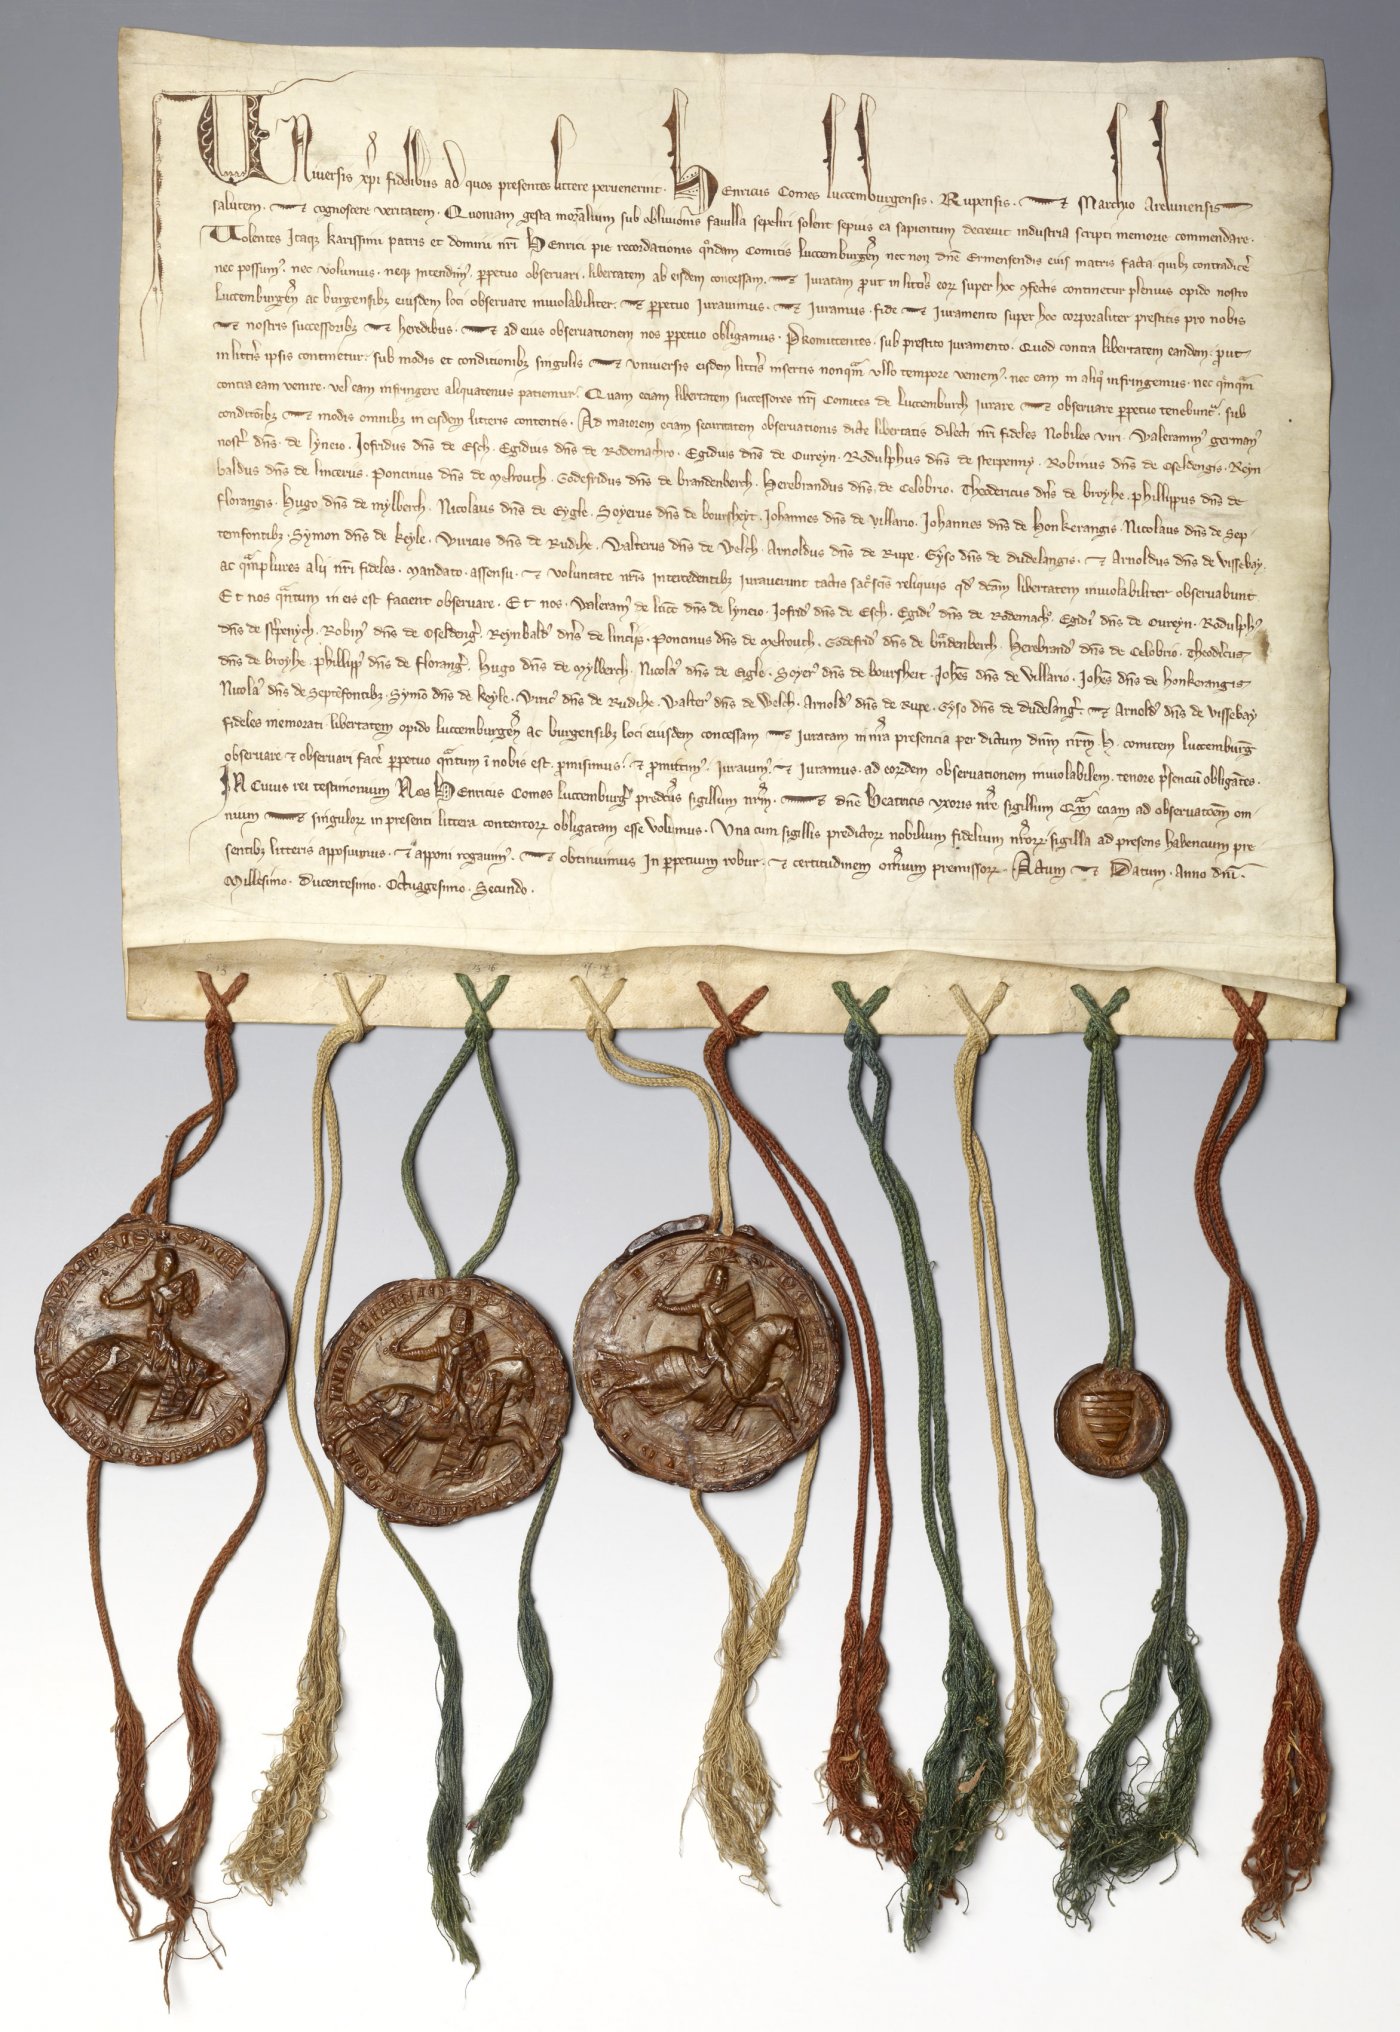 Universis xpi fidelibus ad quos presentes littere pervenerint. Henricus Comes Luccemburgensis. Rupensis. et Marchio Arelunensis
salutem. et cognoscere veritatem. Quoniam gesta mortalium sub oblivionis favilla sepeliri solent sepius ea sapientum decrevit industria scripti memorie commendare.
Volentes Itaqz karissimi patris et domini nri Henrici pie recordationis qondam Comitis Luccemburgen nec non dne Ermensendis eius matris facta quibz contradice
nec possum. nec volumus. neqz intendim. perpetuo observari. libertatem ab eisdem concessam. et Iuratam prout in litteris eorz super hoc confectis continetur plenius opido nostro
Lucemburgen ac burgensibz eiusdem loci observare inviolabiliter. et perpetuo Iuravimus. et Iuramus. fide et Iuramento super hoc corporaliter prestitis pro nobis
et nostris successoribz et heredibus. et ad eius observationem nos perpetuo obligamus. Promittentes. sub prestito iuramento. Quod contra libertatem eandem. prout
in litteris ipsis continetur. sub modis et conditionibz singulis et universis eisdem litteris insertis nonqam ullo tempore veniem. nec eam in aliqo infringemus. nec qmqam
contra eam venire. vel eam infringere aliquatenus patiemur. Quam eciam libertatem successores nri Comites de Luccemburch iurare et observare perpetuo tenebunt. sub
conditoibz et modis omnibz in eisdem litteris contentis. Ad maiorem eciam securitatem observationis dicte libertatis dilecti nri fideles Nobiles viri. Waleramm german
nost. dns. de lyneio. Iofridus dns de Esch. Egidius dns de Rodemachro. Egidius dns de Oureyn. Rodulphus dns de sterpenny. Robinus dns de Oseldengis. Reyn
baldus dns de lincerus. Poncinus dns de Meltouth. Godefridus dns de brandenberch. Herebrandus dns de Celobrio. Theodericus dns de broyhe. Phillippus dns de
florangis. Hugo dns de Mylberch. Nicolaus dns de Eygle. Soyerus dns de boursheyt. Iohannes dns de villario. Iohannes dns de Honkerangis. Nicolaus dns de Sep
temfontibz. Symon dns de keyle. Wiricus dns de Rudihe. Walterus dns de Welch. Arnoldus dns de Rupe. Gyso dns de dudelangis. et Arnoldus dns de vissebay.
ac qmplures alii nri fideles. mandato. assensu. et voluntate nris intercedentibz iuraverunt tactis sacscis reliquiis qd dcam libertatem inviolabiliter observabunt
Et nos qantum in eis est facient observare. Et nos. Waleram de lucc dns de lyneio. Iofrid dns de Esch. Egidi dns de Rodemach. Egidi dns de Oureyn. Rodulph
dns de sterpenych. Robin dns de Oseldeng. Reynbald dns de lincers. Poncinus dns de Meltouth. Godefrid dns de brandenberch. Herebrand dns de Celobrio. Theodicus
dns de broyhe. Phillipp dns de florang. Hugo dns de Mylberch. Nicola dns de Eigle. Soyer dns de boursheit. Iohes dns de Villario. Iohes dns de honkerangis
Nicola dns de Septefontibz. Symo dns de keyle. Wiric dns de Rudihe. Walter dns de Welch. Arnold dns de Rupe. Gyso dns de dudelang. et Arnold dns de vissebay
fideles memorati libertatem opido luccemburgen ac burgensibz loci eiusdem concessam et iuratam in nra presencia per dictum dnm nrm H. comitem luccemburg
observare et observari face perpetuo qantum i nobis est. promisimus. et promittim. iuravim. et iuramus. ad eorzdem observationem inviolabilem. tenore psencium obligates.
IN Cuius rei testimonium Nos Henricus Comes Luccemburg predcus sigillum nrm. et dne Beatricis uxoris nre sigillum Qam eciam ad observatoem om
nium et singulorz in presenti littera contentorz obligatam esse volumus. Una cum sigillis predictorz nobilium fidelium nrorz. sigilla ad presens habencium pre
sentibz litteris apposuimus. et apponi rogavim. et obtinuimus In perpetuum robur. et certitudinem omnium premissorz. Actum et Datum. anno dni.
Millesimo. Ducentesimo. Octuagesimo. Secundo.